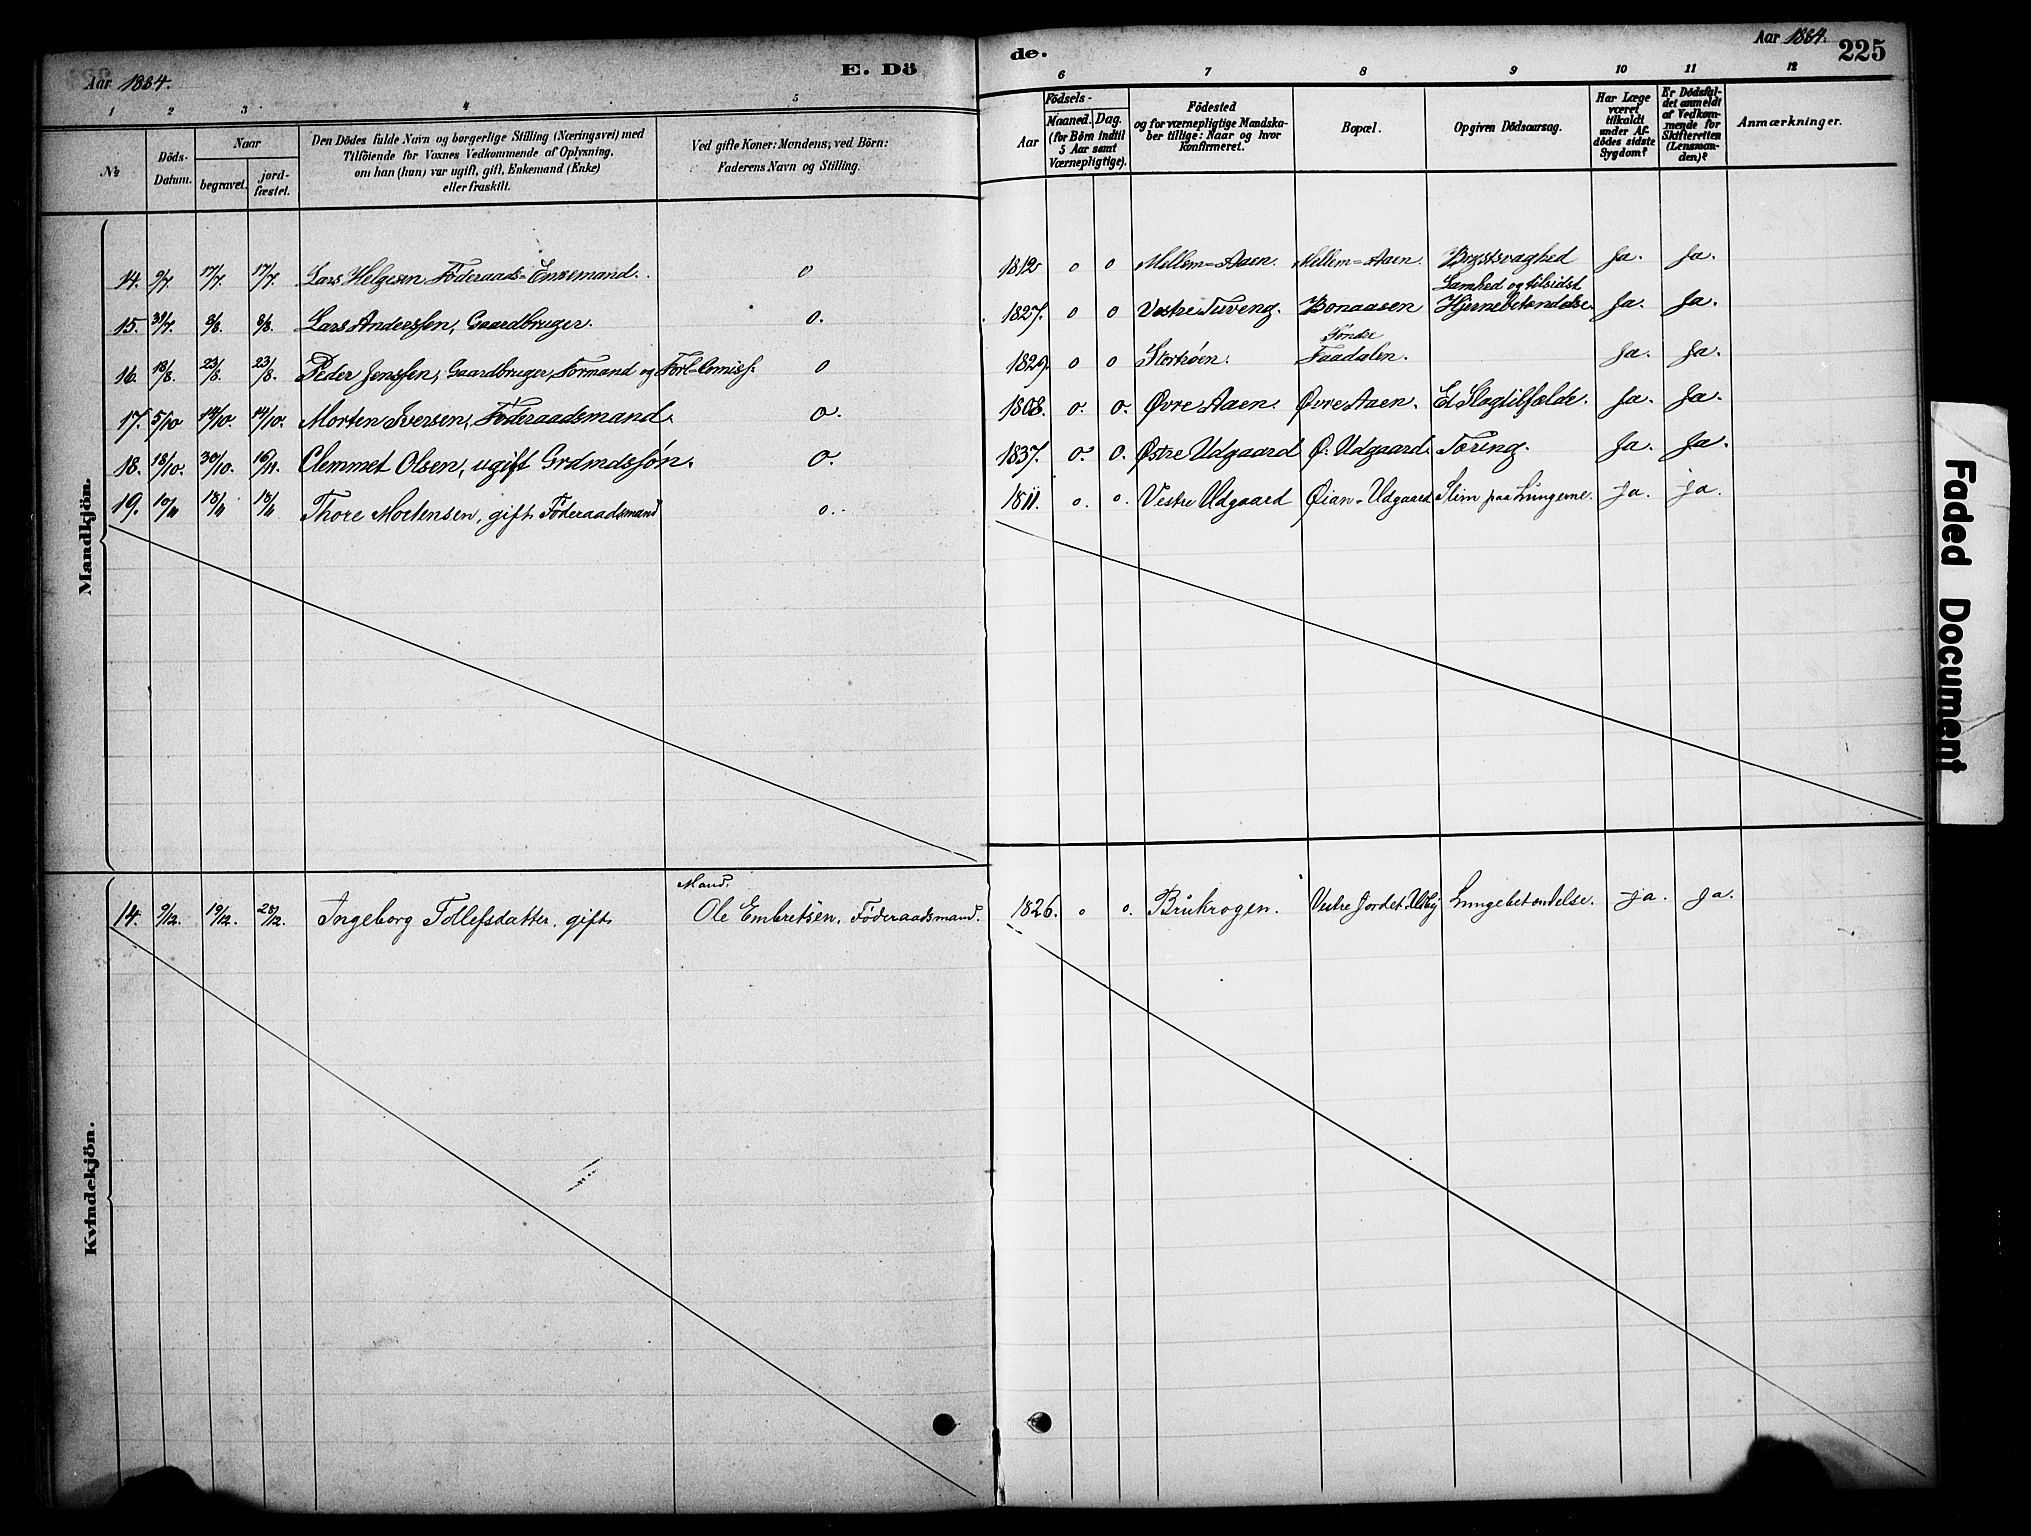 Aar 1884.
E. Dö
de.
Aar 1884.
225
1 2 3 4 5
6 7 8 9 10 11 12
No
Döds-Datum.
Naar
begravet.
jord-fæstet.
Den Dödes fulde Navn og borgerlige Stilling (Næringsvei) med
Tilföiende for Voxnes Vedkommende af Oplysning,
om han (hun) var ugift, gift, Enkemand (Enke)
eller fraskilt.
Ved gifte Koner: Mandens; ved Börn:
Faderens Navn og Stilling.
Födsels-
Aar
Maaned. Dag.
(for Börn indtil
5 Aar samt
Værnepligtige).
Födested
og for værnepligtige Mandska-
ber tillige: Naar og hvor
Konfirmeret.
Bopæl.
Opgiven Dödsaarsag.
Har Læge
været
tilkaldt
under Af-
dödes sidste
Sygdom?
Er Dödsfal-
det anmeldt
af Vedkom-
mende for
Skifteretten
(Lensman-
den)?
Anmærkninger.
Mandkjön.
14. 9/7. 17/7. 17/7. Lars Helgesen Föderaads=Enkemand. o 1812 o o Mellem=Aaen. Mellem=Aaen. Brystsvaghed Ja. Ja.
Lamhed og tilsidst
15. 31/7. 8/8. 8/8. Lars Anderssen, Gaardbruger. o. 1827. o o Vestre Tuveng. Bonaasen Hjernebetændelse. Ja. Ja.
Söndre
16. 18/8. 23/8. 23/8. Peder Jenssen, Gaardbruger, Formand og Forl=Comiss. o 1829. o o Faadalen. Ja. Ja.
17. 5/10 14/10. 14/10. Morten Iversen, Föderaadsmand. o. 1808. o. o. Øvre Aaen. Øvre Aaen. Et Slagtilfælde. Ja. Ja.
18. 18/10. 30/10. 16/11. Clemmet Olsen, ugift Grdmdssøn. o. 1837. o. o. Østre Udgaard Ø. Udgaard. Tæring. Ja. Ja.
19. 10/11 18/11 18/11 Thore Mortensen, gift Föderaadsmand o. 1811. o. o. Vestre Udgaard Øian=Udgaard Slim paa Lungerne. Ja. Ja.
Kvindekjön.
Mand.
14. 9/12. 19/12. 28/12. Ingeborg Tollefsdatter, gift. Ole Embretsen, Föderaadsmand. 1826. o o. Brukrogen. Vestre Jordet Lungebetændelse. Ja. Ja.
Faded Document